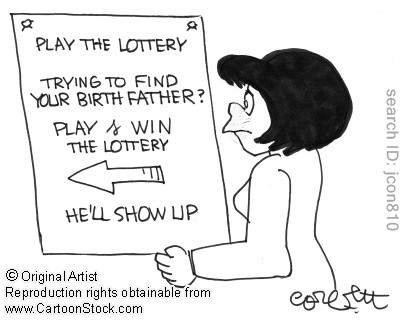 PLAY THE LOTTERY
TRYING TO FIND
YOUR BIRTH FATHER?
PLAY & WIN
THE LOTTERY
HE'LL SHOW UP
search ID: jcon810
© Original Artist
Reproduction rights obtainable from
www.CartoonStock.com